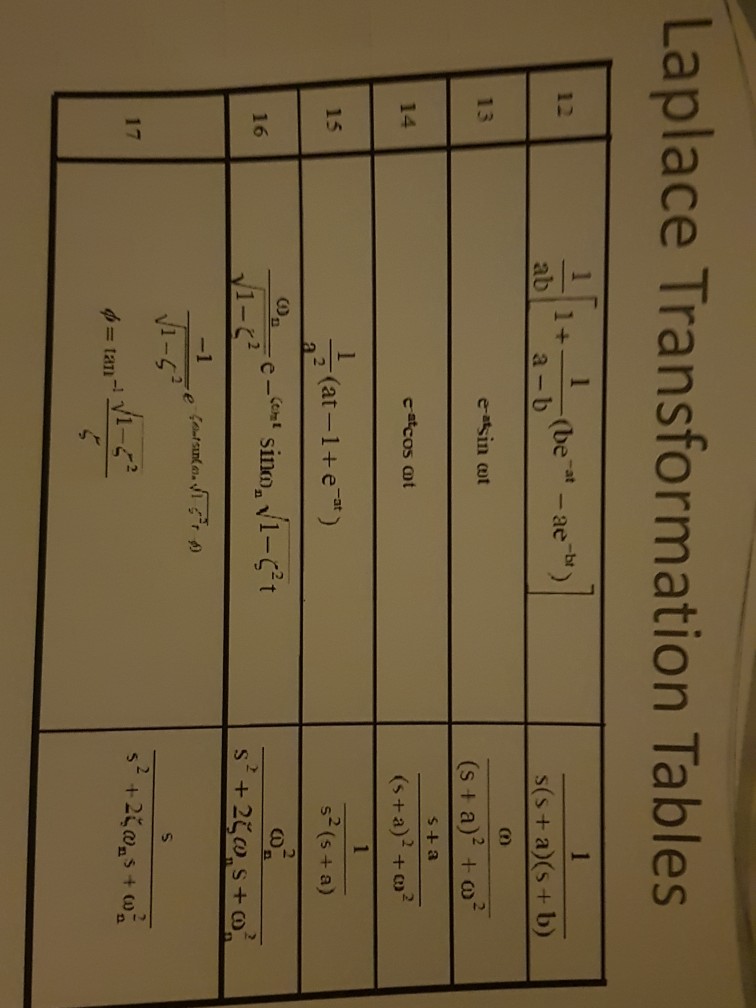 Laplace Transformation Tables
12 1/ab [1 + 1/(a − b) (be^−at − ae^−bt)] 1/(s(s + a)(s + b))
13 e^−at sin ωt ω/((s + a)² + ω²)
14 e^−at cos ωt (s + a)/((s + a)² + ω²)
15 1/a² (at − 1 + e^−at) 1/(s²(s + a))
16 ωₙ/√(1 − ζ²) e^−ζωₙt sin ωₙ √(1 − ζ²) t ωₙ²/(s² + 2ζωₙs + ωₙ²)
17 −1/√(1 − ζ²) e s/(s² + 2ζωₙs + ωₙ²)
φ = tan⁻¹ √(1 − ζ²)/ζ